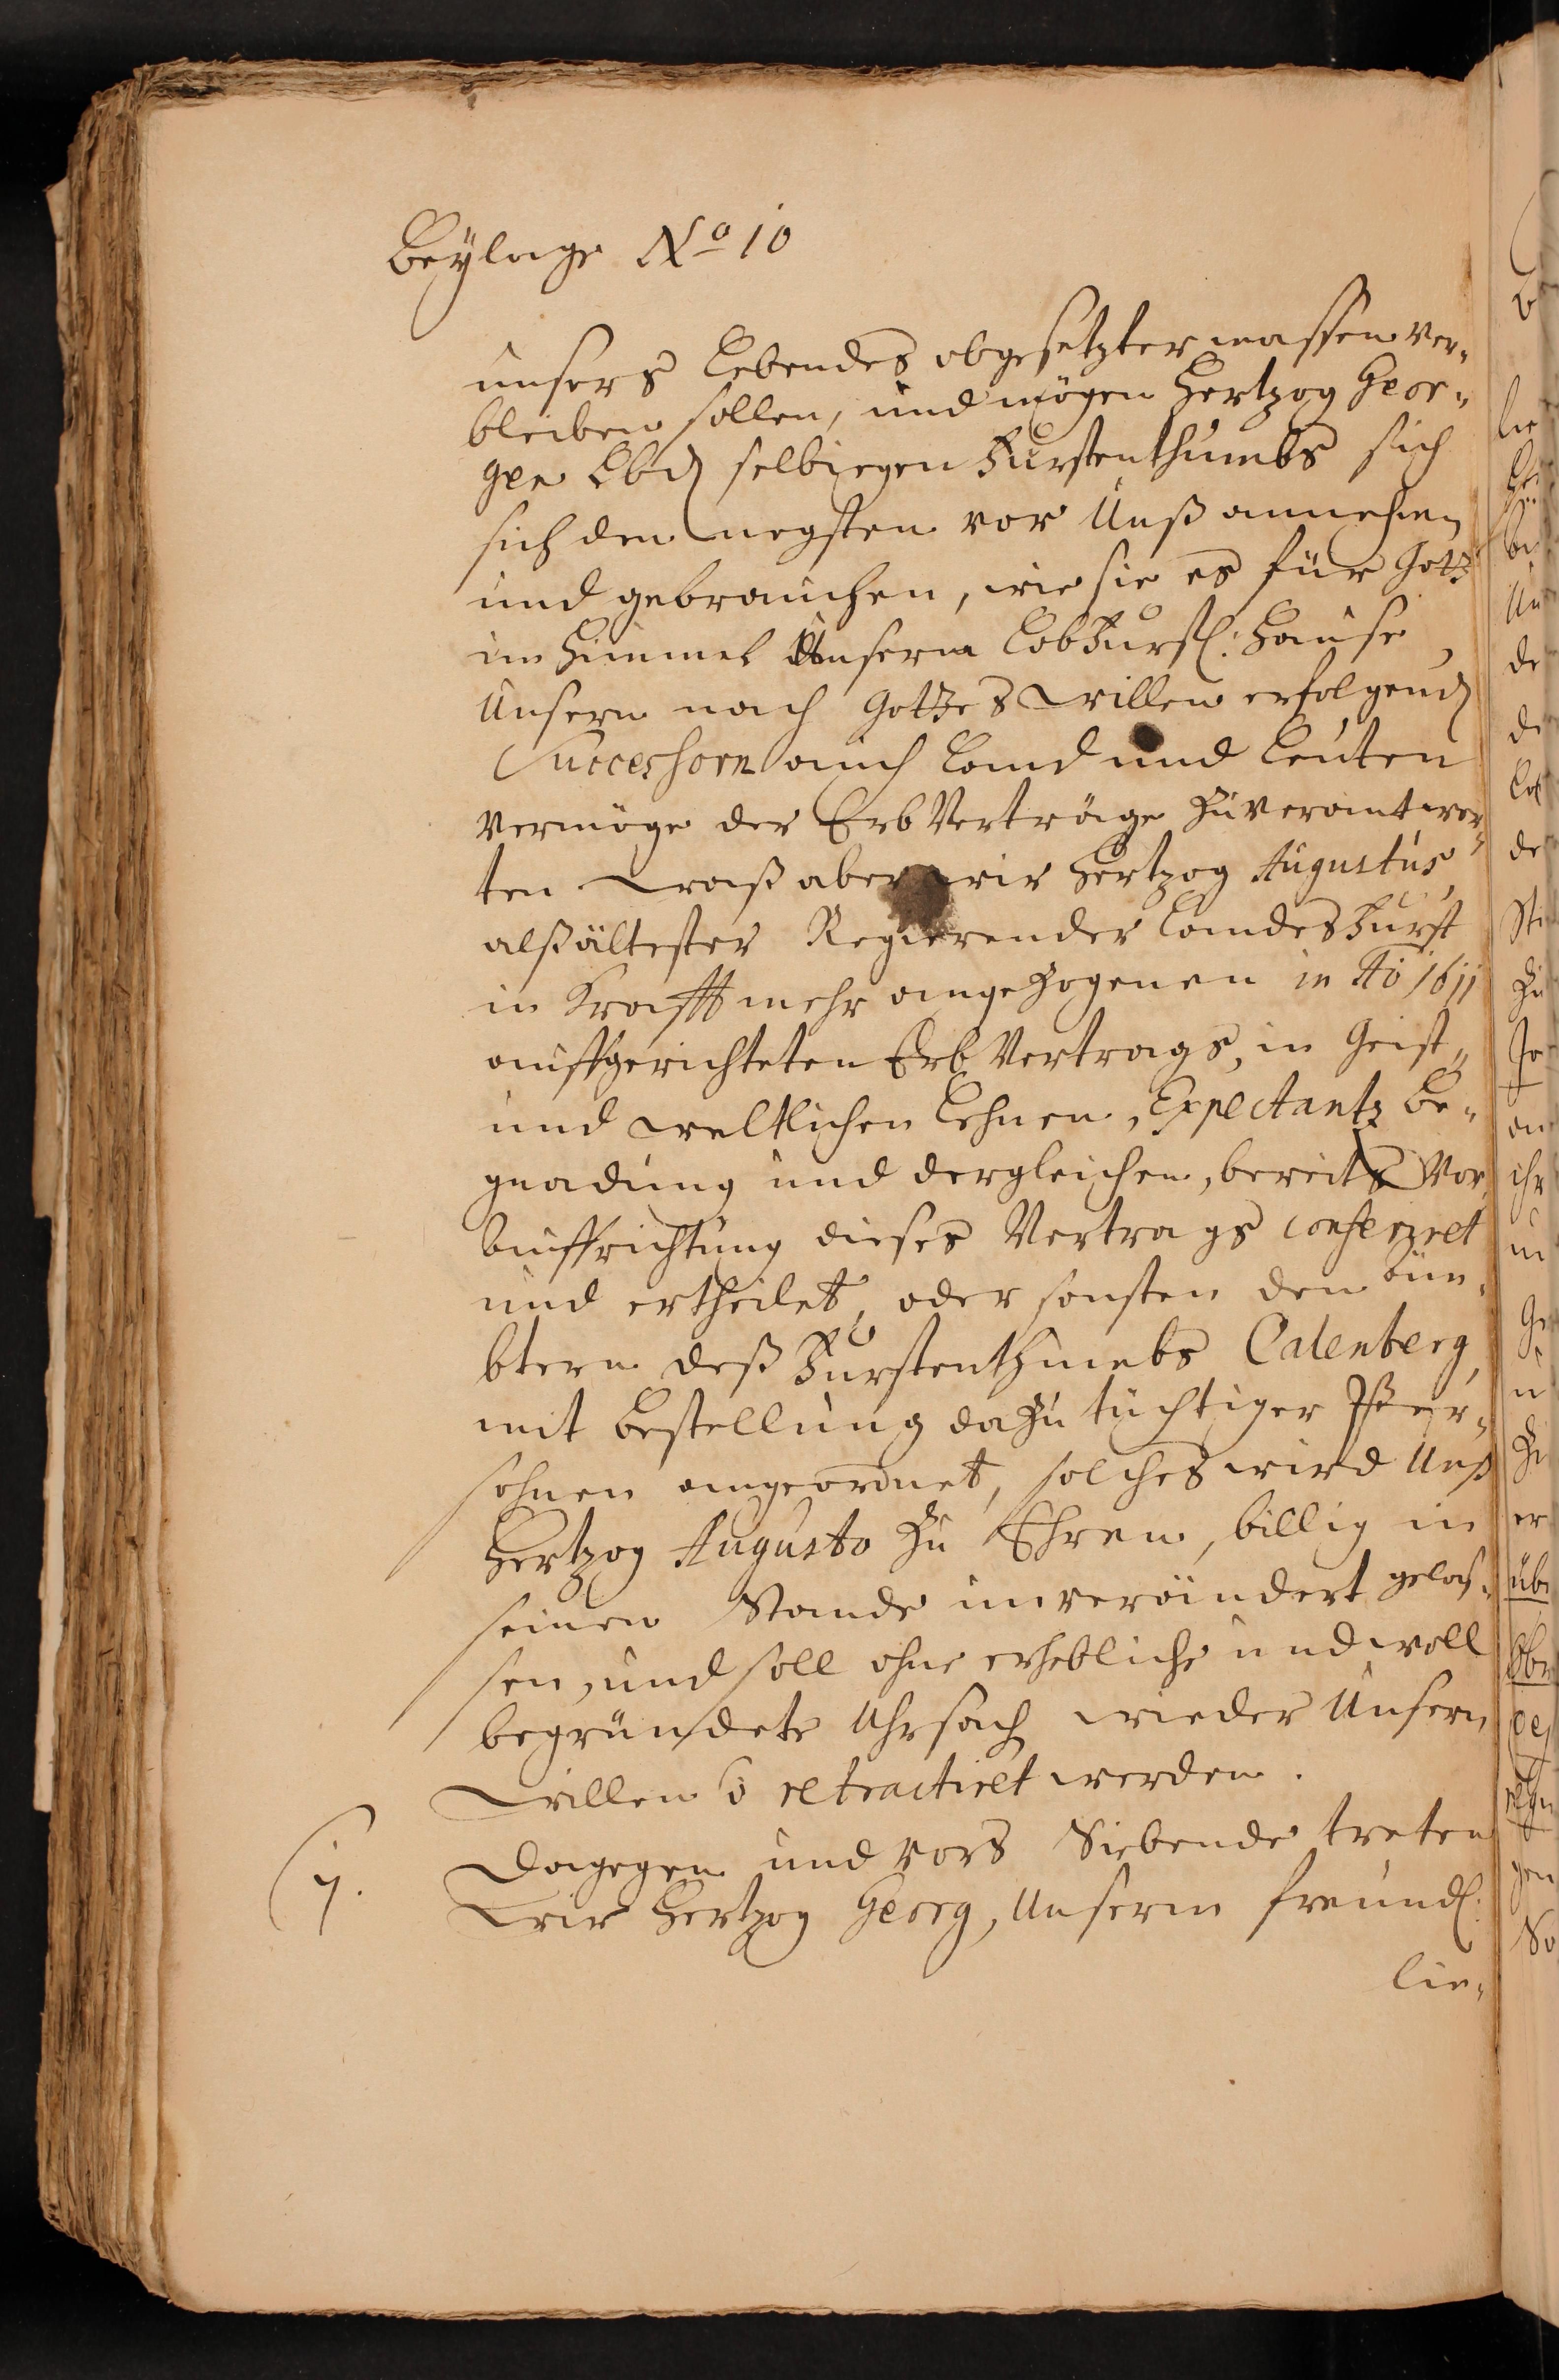 Beÿlage No 10
unsers Lebendes obgesetzter massen ver„
bleiben sollen, und mögen Hertzog Geor„
gen Lbd selbiegen Furstenthumbs sich
sich den negsten vor Unß annehmen
und gebrauchen, wie sie es für Gott
im Himmel Unserm Lob Furstl: Hause,
Unsern nach Gottes willen erfolgend
Successorn auch Land und Leuten
vermöge der Erb Verträge zu verantwor„
ten Waß aber wir Hertzog Augustus
alß ältester Regierender Landes Furst
in Krafft mehr angezogenen in Ao 1611
auffgerichteten Erb Vertrags, in Geist„
und weltlichen Lehnen, Expectantz be„
gnadung und dergleichen, bereits vor
auffrichtung dieses Vertrags conferiret
und ertheilet, oder sonsten den
btern deß Furstenthumbs Calenberg,
mit bestellung dazu tüchtiger Per„
sohnen angeordnet, solches wird Unß
Hertzog Augusto zu Ehren, billig in
seinen Stande unverändert gelaß„
sen, und soll ohne erhebliche und woll
begründete Uhrsach wieder Unsern
Willen retractiret werden.
7. Dagegen und vors Siebende treten
Wir Hertzog Georg, Unserm freundl:
lie„